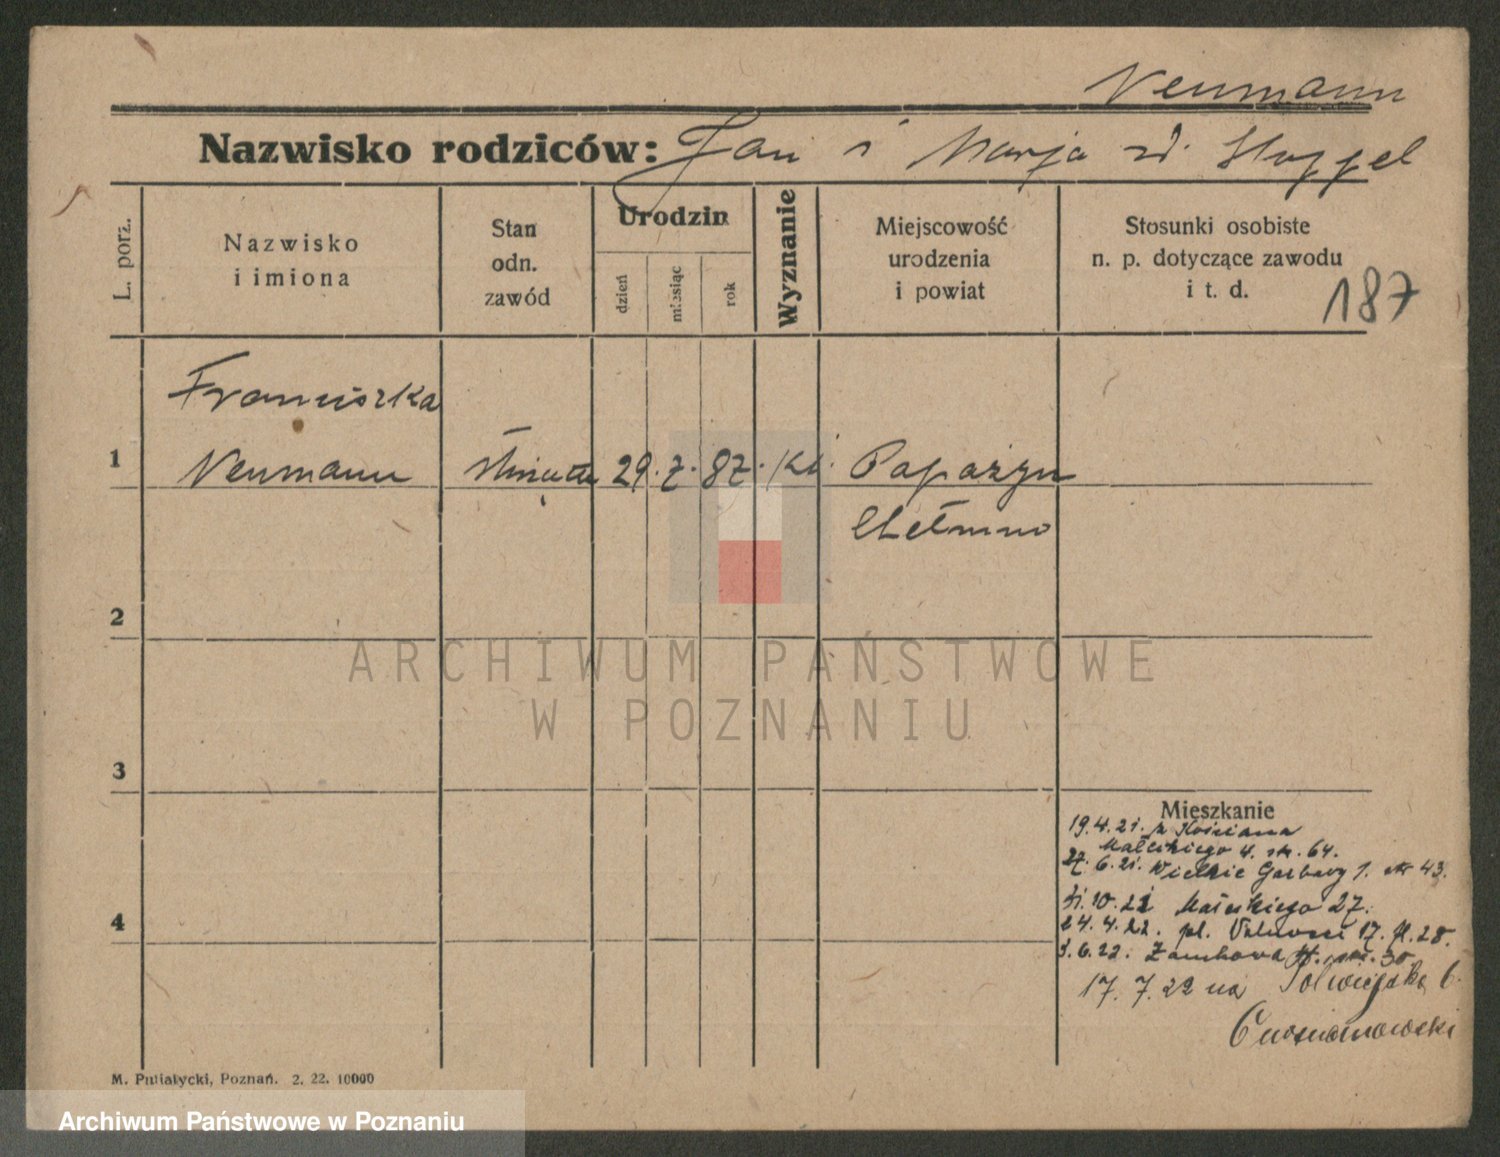 Neumann
Nazwisko rodziców: Jan i Marja zd. Hoppel
L. porz.
Nazwisko
i imiona
Stan
odn.
zawód
Urodzin
dzień
miesiąc
rok
Wyznanie
Miejscowość
urodzenia
i powiat
Stosunki osobiste
n. p. dotyczące zawodu
i t. d.
187
Franciszka
1 Neumann 29. 7. 87. kt. Papażyn
Chełmno
2
3
4
ARCHIWUM PAŃSTWOWE
W POZNANIU
Mieszkanie
19.4.21. z Kościana
Małeckiego 4. str. 64.
27.6.21. Wielkie Garbary 1. str 43.
10.21 Małeckiego 27.
24.4.22. pl. Wolności 17. 28.
3.6.22. Zamkowa str. 30
17. 7. 22 na Półwiejska 6.
M. Putiatycki, Poznań. 2. 22. 10000
Archiwum Państwowe w Poznaniu